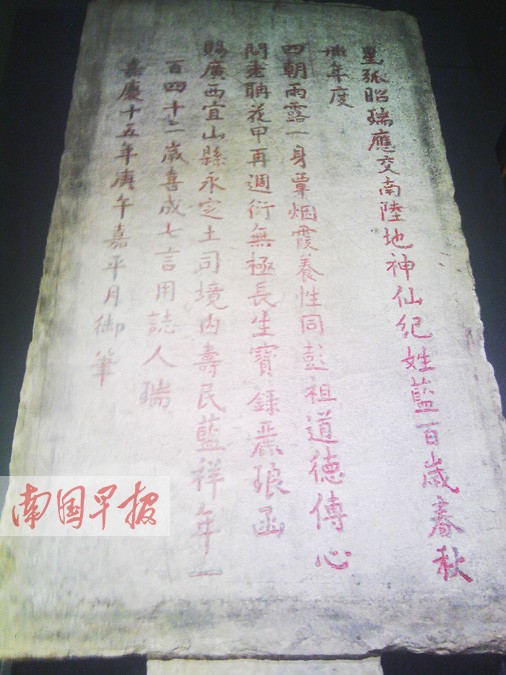 星弧昭瑞應交南陸地神仙紀姓藍百歲春秋
卌年度
四朝雨露一身覃烟霞養性同彭祖道德傳心
問老聃花甲再週衍無極長生寶籙麗琅函
賜廣西宜山縣永定土司境內壽民藍祥年一
百四十二歲喜成七言用誌人瑞
嘉慶十五年庚午嘉平月御筆
南国早报